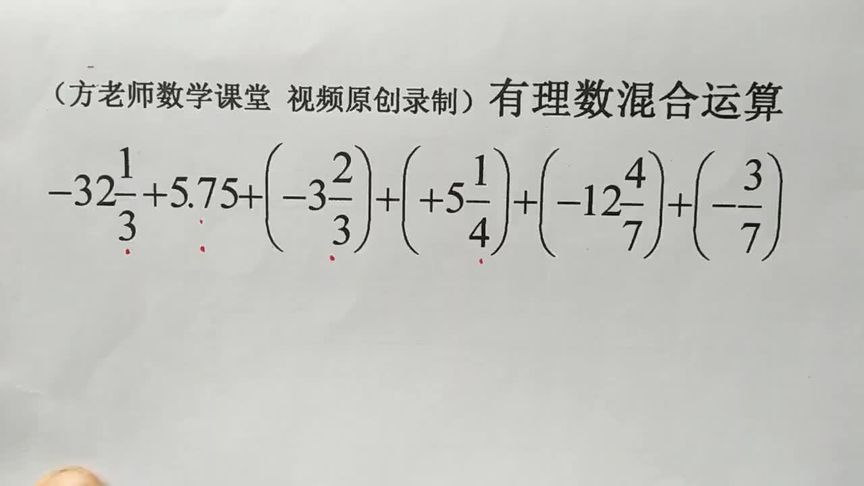 (方老师数学课堂 视频原创录制) 有理数混合运算
-32 1/3 +5.75+(-3 2/3)+(+5 1/4)+(-12 4/7)+(-3/7)